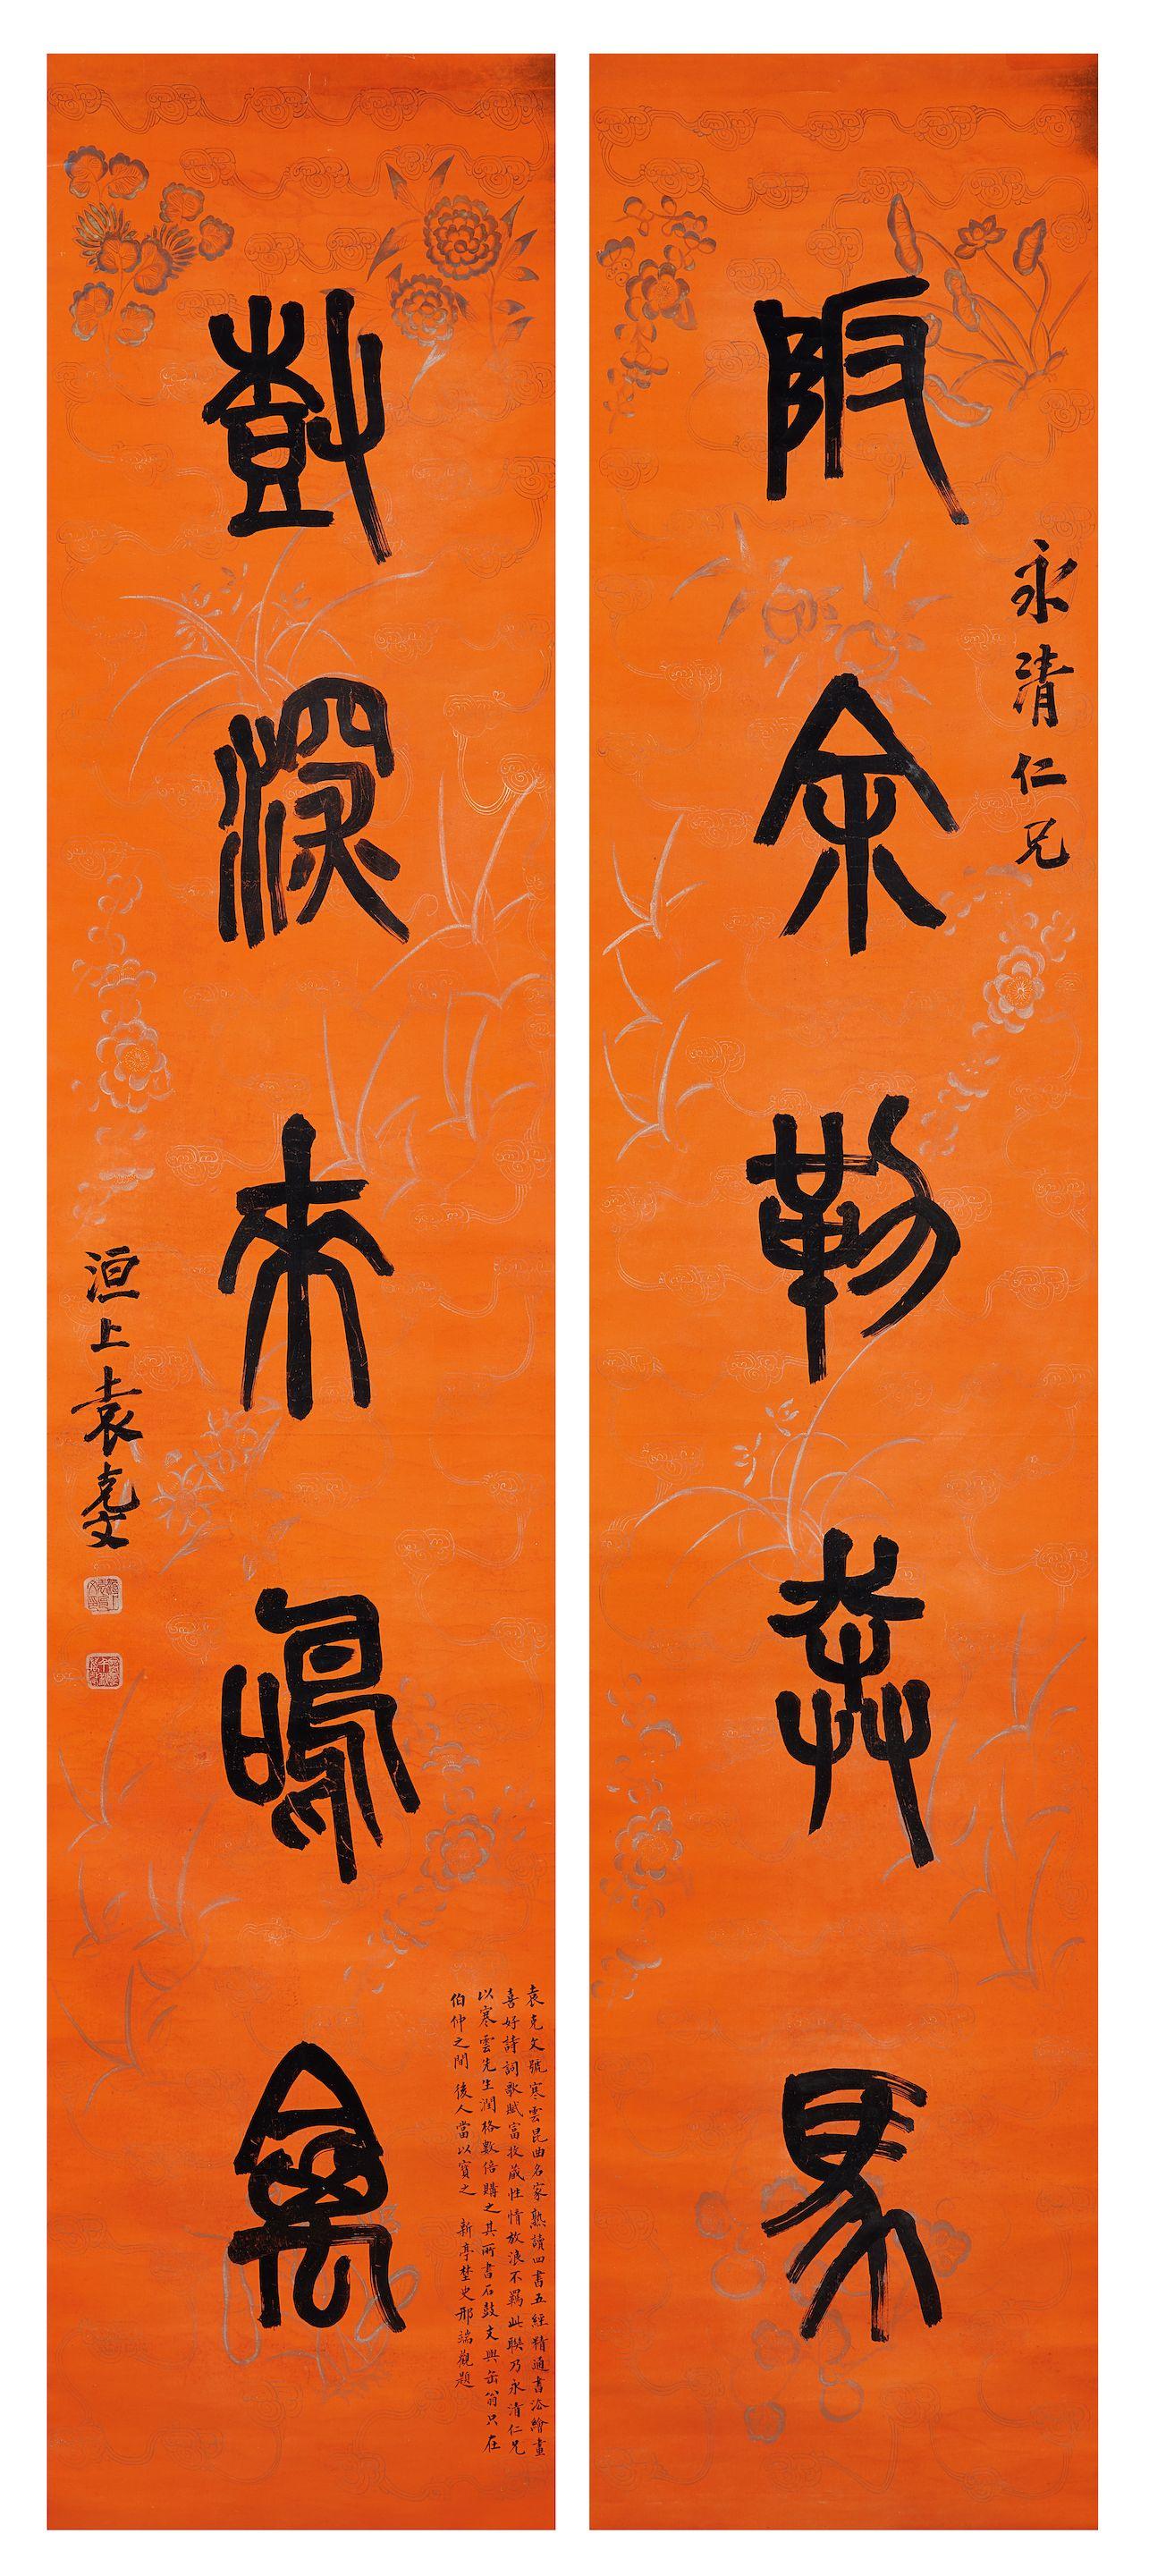 永清仁兄
阪余勒奔馬
樹深來鳴禽
洹上袁克文
袁克文號寒雲昆曲名家熟讀四書五經精通書法繪畫
喜好詩詞歌賦富收藏性情放浪不羈此聯乃永清仁兄
以寒雲先生潤格數倍購之其所書石鼓文與缶翁只在
伯仲之間後人當以寶之 新亭埜史邢端觀題